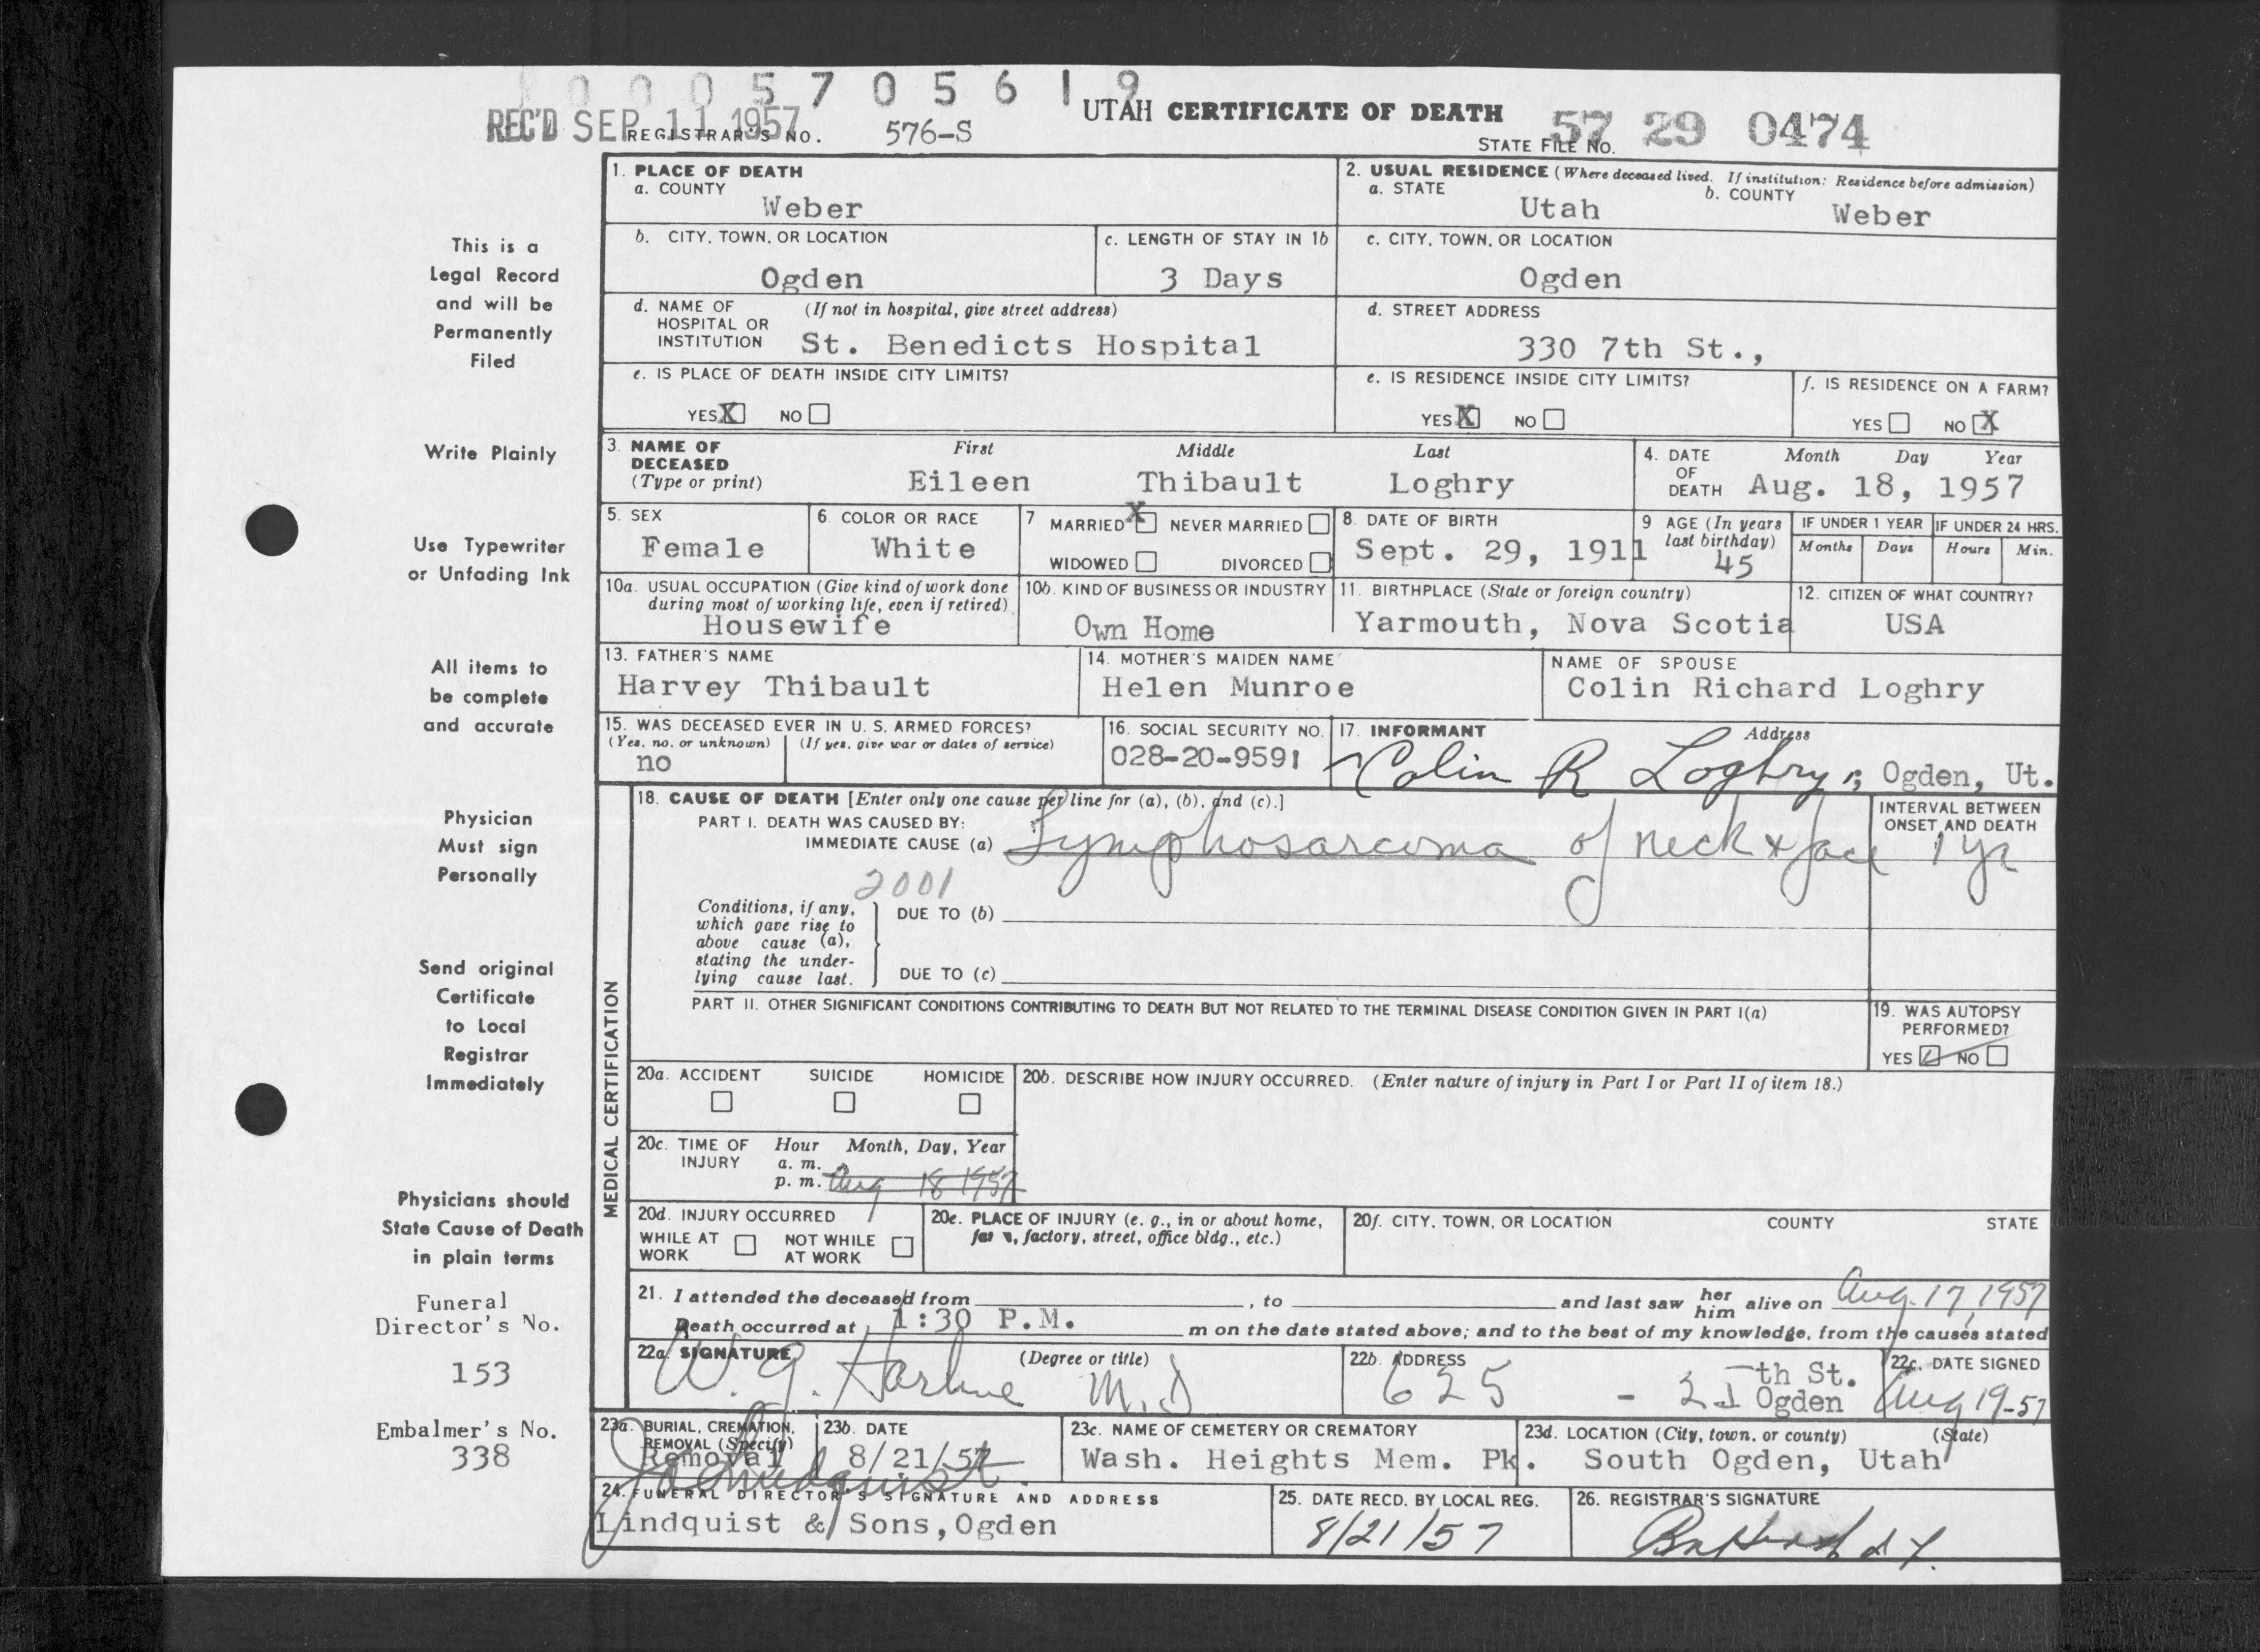 0005705619
REC'D SEP 11 1957
REGISTRAR'S NO. 576-S
UTAH CERTIFICATE OF DEATH
STATE FILE NO. 57 29 0474
This is a
Legal Record
and will be
Permanently
Filed
Write Plainly
Use Typewriter
or Unfading Ink
All items to
be complete
and accurate
Physician
Must sign
Personally
Send original
Certificate
to Local
Registrar
Immediately
Physicians should
State Cause of Death
in plain terms
Funeral
Director's No.
153
Embalmer's No.
338
1. PLACE OF DEATH
a. COUNTY
Weber
2. USUAL RESIDENCE (Where deceased lived. If institution: Residence before admission)
a. STATE b. COUNTY
Utah Weber
b. CITY, TOWN, OR LOCATION
Ogden
c. LENGTH OF STAY IN 1b
3 Days
c. CITY, TOWN, OR LOCATION
Ogden
d. NAME OF (If not in hospital, give street address)
HOSPITAL OR
INSTITUTION St. Benedicts Hospital
d. STREET ADDRESS
330 7th St.,
e. IS PLACE OF DEATH INSIDE CITY LIMITS?
YES X NO
e. IS RESIDENCE INSIDE CITY LIMITS?
YES X NO
f. IS RESIDENCE ON A FARM?
YES NO X
3. NAME OF First Middle Last
DECEASED
(Type or print) Eileen Thibault Loghry
4. DATE Month Day Year
OF
DEATH Aug. 18, 1957
5. SEX
Female
6 COLOR OR RACE
White
7 MARRIED X NEVER MARRIED
WIDOWED DIVORCED
8. DATE OF BIRTH
Sept. 29, 1911
9 AGE (In years
last birthday)
45
IF UNDER 1 YEAR IF UNDER 24 HRS.
Months Days Hours Min.
10a. USUAL OCCUPATION (Give kind of work done
during most of working life, even if retired)
Housewife
10b. KIND OF BUSINESS OR INDUSTRY
Own Home
11. BIRTHPLACE (State or foreign country)
Yarmouth, Nova Scotia
12. CITIZEN OF WHAT COUNTRY?
USA
13. FATHER'S NAME
Harvey Thibault
14. MOTHER'S MAIDEN NAME
Helen Munroe
NAME OF SPOUSE
Colin Richard Loghry
15. WAS DECEASED EVER IN U. S. ARMED FORCES?
(Yes, no, or unknown) (If yes, give war or dates of service)
no
16. SOCIAL SECURITY NO.
028-20-9591
17. INFORMANT Address
Colin R Loghry, Ogden, Ut.
MEDICAL CERTIFICATION
18. CAUSE OF DEATH [Enter only one cause per line for (a), (b), and (c).]
PART I. DEATH WAS CAUSED BY:
IMMEDIATE CAUSE (a) Lymphosarcoma of neck & face
INTERVAL BETWEEN
ONSET AND DEATH
1 yr
2001
Conditions, if any,
which gave rise to
above cause (a),
stating the under-
lying cause last.
DUE TO (b)
DUE TO (c)
PART II. OTHER SIGNIFICANT CONDITIONS CONTRIBUTING TO DEATH BUT NOT RELATED TO THE TERMINAL DISEASE CONDITION GIVEN IN PART I(a)
19. WAS AUTOPSY
PERFORMED?
YES NO
20a. ACCIDENT SUICIDE HOMICIDE
20b. DESCRIBE HOW INJURY OCCURRED. (Enter nature of injury in Part I or Part II of item 18.)
20c. TIME OF Hour Month, Day, Year
INJURY a. m.
p. m. Aug 18 1957
20d. INJURY OCCURRED
WHILE AT NOT WHILE
WORK AT WORK
20e. PLACE OF INJURY (e. g., in or about home,
farm, factory, street, office bldg., etc.)
20f. CITY, TOWN, OR LOCATION COUNTY STATE
21. I attended the deceased from , to and last saw her him alive on Aug. 17, 1957
Death occurred at 1:30 P.M. m on the date stated above; and to the best of my knowledge, from the causes stated
22a. SIGNATURE (Degree or title)
W. J. Harline M.D
22b. ADDRESS
625 - 25th St.
Ogden
22c. DATE SIGNED
Aug 19-57
23a. BURIAL, CREMATION,
REMOVAL (Specify)
Removal
23b. DATE
8/21/57
23c. NAME OF CEMETERY OR CREMATORY
Wash. Heights Mem. Pk.
23d. LOCATION (City, town, or county) (State)
South Ogden, Utah
24. FUNERAL DIRECTOR'S SIGNATURE AND ADDRESS
Lindquist & Sons, Ogden
25. DATE RECD. BY LOCAL REG.
8/21/57
26. REGISTRAR'S SIGNATURE